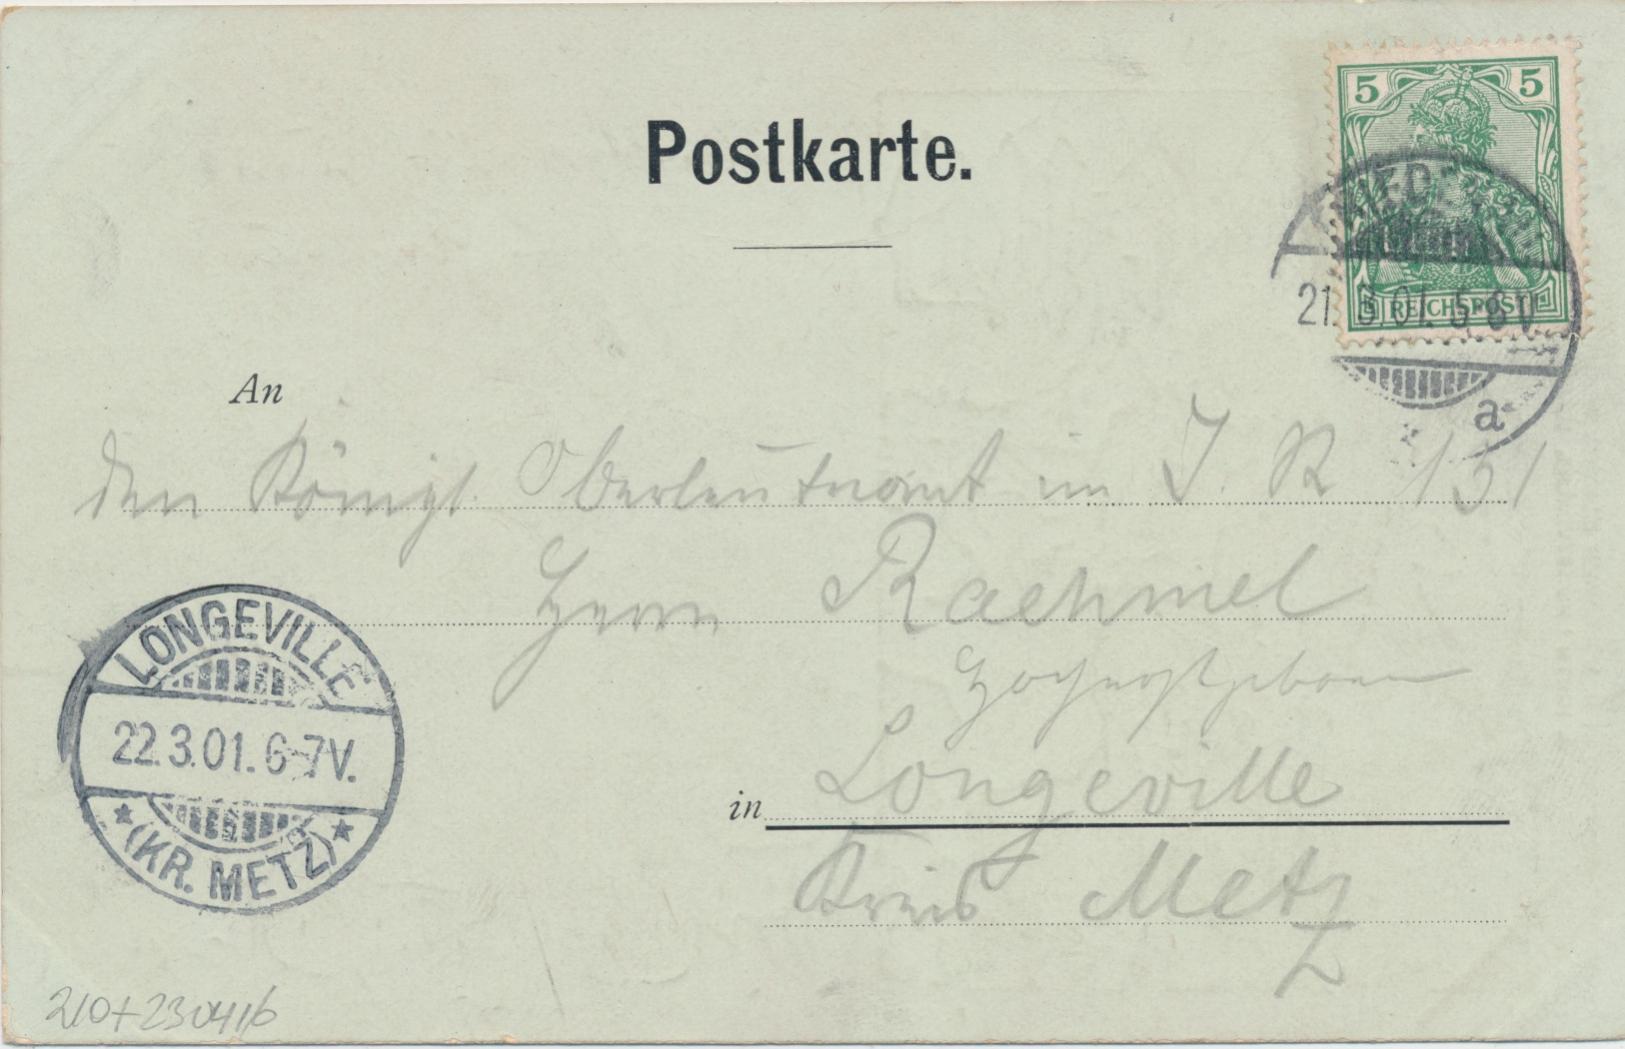 Postkarte.
5 5
REICHSPOST
21.3.01. 5-6V
a
An
den Königl. Oberleutnant im I. R 131
Herrn Raehmel
Hochwohlgeboren
in Longeville
Kreis Metz
LONGEVILLE
22.3.01. 6-7V.
(KR. METZ)
210+230416